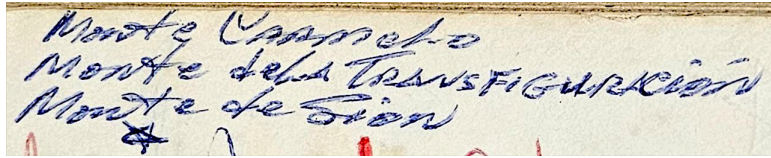 Monte Carmelo
Monte dela TRANSFIGURACIÓN
Monte de Sion